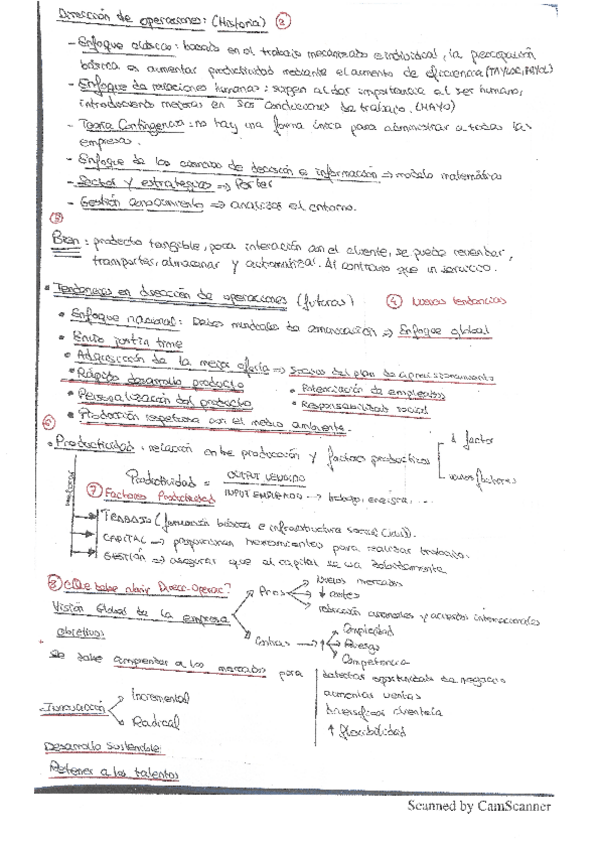 Dirección de operaciones: (Historia) 2
- Enfoque clásico: basado en el trabajo mecanizado e individual, la preocupación
básica es aumentar productividad mediante el aumento de eficiencia (TAYLOR, FAYOL)
- Enfoque de relaciones humanas: surgen al dar importancia al ser humano,
introduciendo mejoras en sus condiciones de trabajo. (MAYO)
- Teoría Contingencia: no hay una forma única para administrar a todas las
empresas.
- Enfoque de las ciencias de decisión e información => modelo matemático
- Sector y estrategias => Porter
- Gestión conocimiento => analizar el entorno.
3
Bien: producto tangible, poca interacción con el cliente, se puede revender,
transportar, almacenar y automatizar. Al contrario que un servicio.
• Tendencias en dirección de operaciones (futuras) 4 Nuevas tendencias
• Enfoque nacional: Redes mundiales de comunicación => Enfoque global
• Envío justin time
• Adquisición de la mejor oferta => Socios del plan de aprovisionamiento
• Rápido desarrollo producto • Potenciación de empleados
• Personalización del producto • Responsabilidad social
• Producción respetuosa con el medio ambiente.
6
• Productividad: relación entre producción y factores productivos
1 factor
varios factores
Productividad = OUTPUT
INPUT EMPLEADO -> trabajo, energía...
7 Factores Productividad
TRABAJO (formación básica e infraestructura social (útil)).
CAPITAL -> proporcionan herramientas para realizar trabajo.
GESTIÓN => asegurar que el capital se usa
8 ¿Que debe Direcc-Operac?
Visión Global de la empresa
Pros
nuevos mercados
↓ costes
reducción aranceles y acuerdos internacionales
Contras -> ↑
Complejidad
Riesgo
Competencia
objetivo:
Se debe comprender a los mercados para
detectar oportunidades de negocio
aumentar ventas
Diversificar clientela
↑ flexibilidad
Innovación
Incremental
Radical
Desarrollo Sostenible:
Retener a los talentos
Scanned by CamScanner